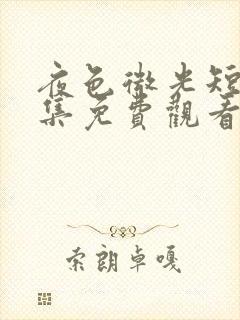 夜色微光短
集免費觀看
索朗卓嘎